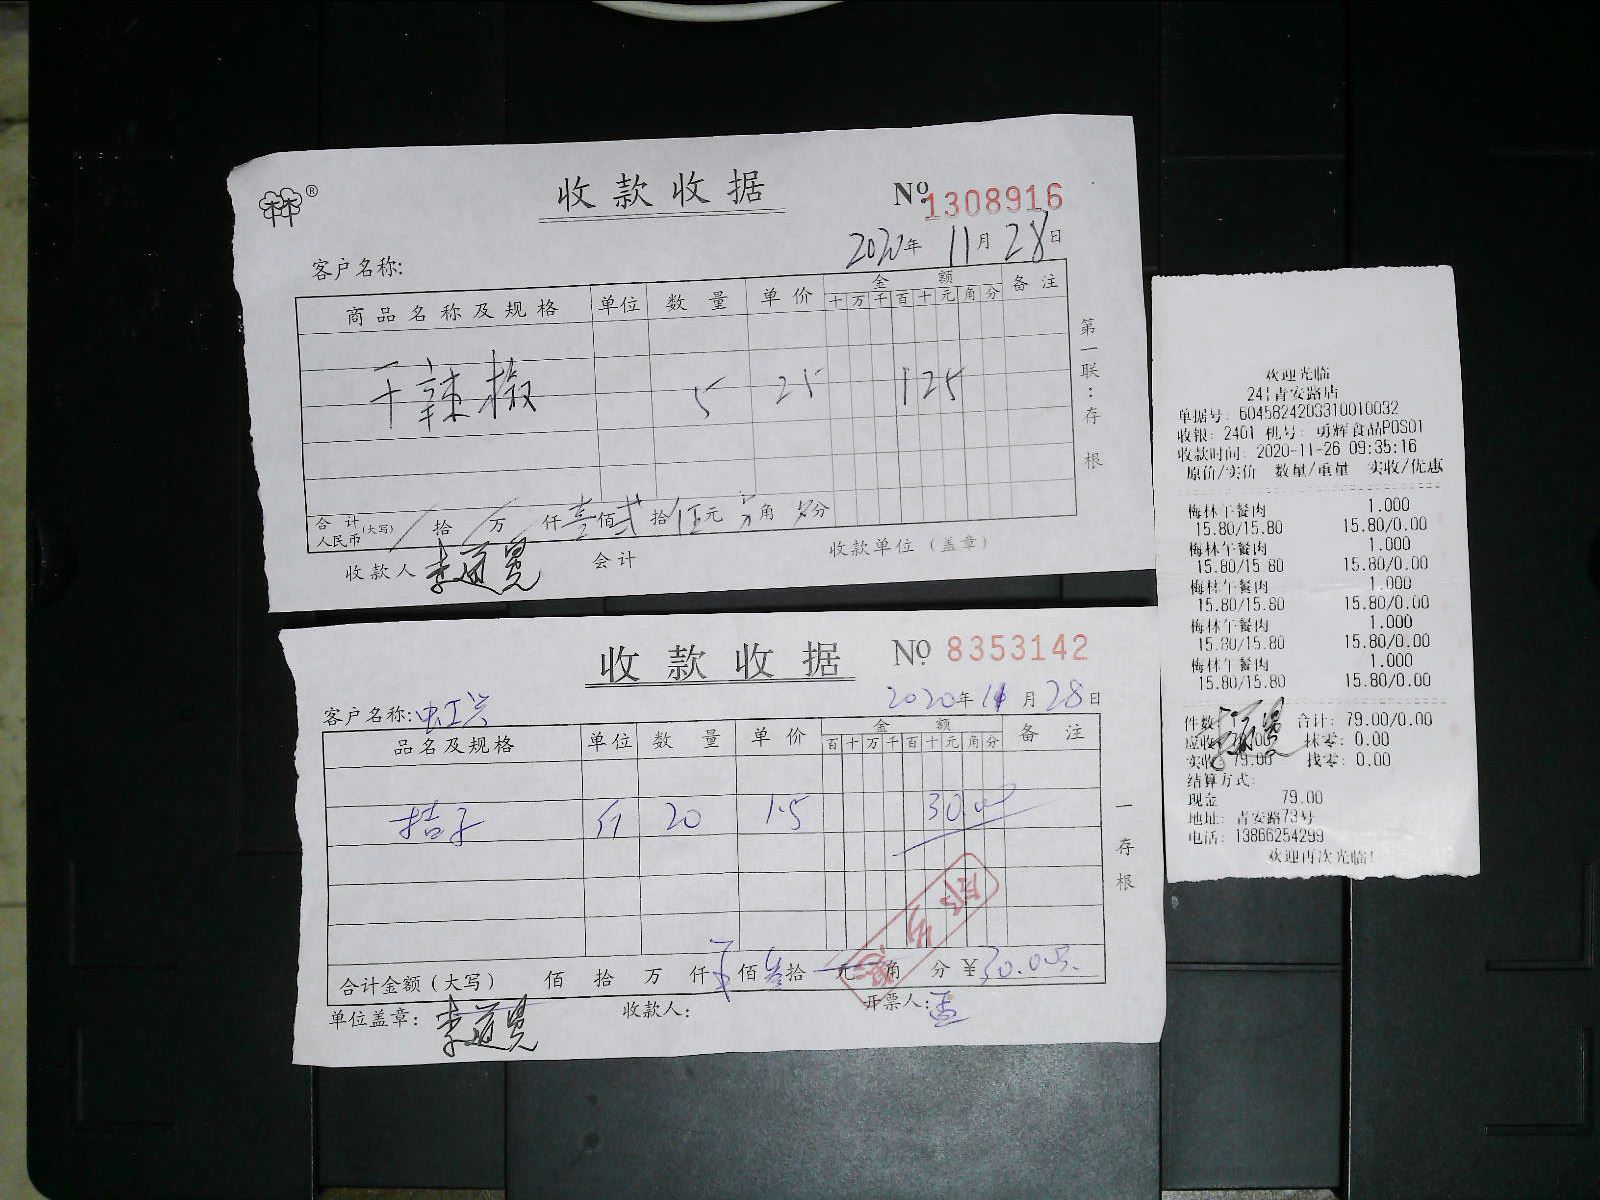 林®
收款收据
№1308916
2020年11月28日
客户名称:
商品名称及规格 单位 数量 单价 金额 备注
十万千百十元角分
干辣椒 5 25 125
合计人民币(大写) 拾 万 仟壹佰贰拾伍元 角 分
收款人 会计 收款单位（盖章）
第一联:存根
收款收据
№ 8353142
2020年11月28日
客户名称:
品名及规格 单位 数量 单价 金额 备注
百十万千百十元角分
桔子 斤 20 1.5 30.00
合计金额(大写) 佰 拾 万 仟 佰叁拾 元 角 分 ¥30.00
单位盖章: 收款人: 开票人:
一存根
欢迎光临
241青安路店
单据号: 6045824203310010032
收银: 2401 机号: 勇辉食品POS01
收款时间: 2020-11-26 09:35:16
原价/实价 数量/重量 实收/优惠
梅林午餐肉 1.000
15.80/15.80 15.80/0.00
梅林午餐肉 1.000
15.80/15.80 15.80/0.00
梅林午餐肉 1.000
15.80/15.80 15.80/0.00
梅林午餐肉 1.000
15.80/15.80 15.80/0.00
梅林午餐肉 1.000
15.80/15.80 15.80/0.00
件数: 合计: 79.00/0.00
应收: 抹零: 0.00
实收: 79.00 找零: 0.00
结算方式:
现金 79.00
地址: 青安路73号
电话: 13866254299
欢迎再次光临!